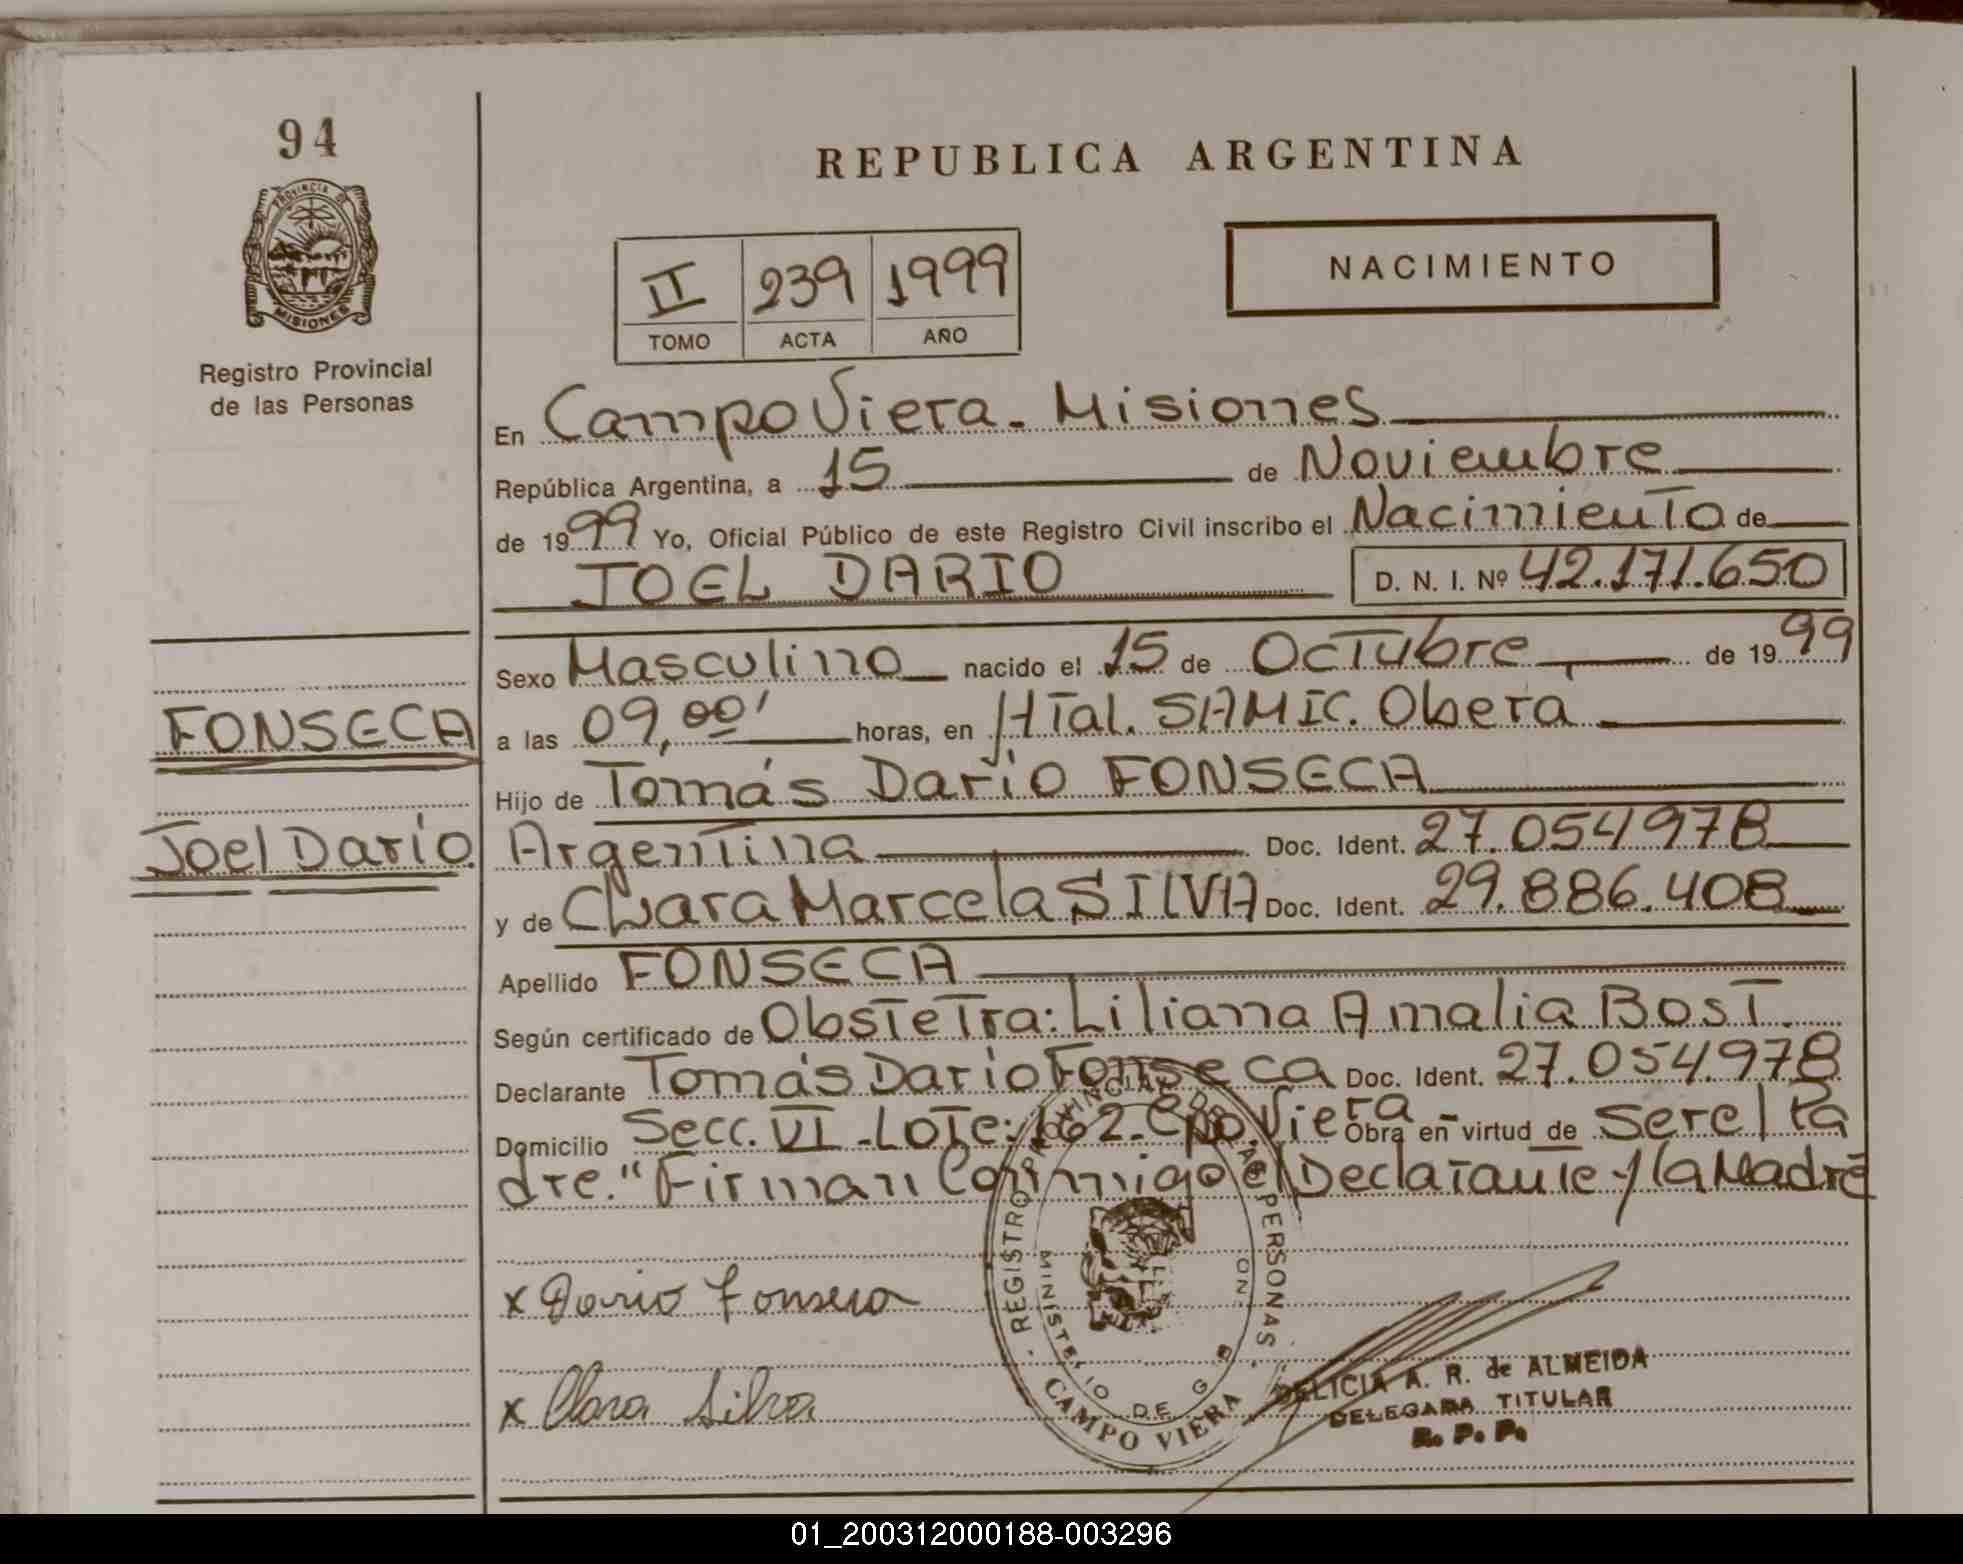 94
PROVINCIA DE
MISIONES
Registro Provincial
de las Personas
REPUBLICA ARGENTINA
II 239 1999
TOMO ACTA AÑO
NACIMIENTO
En Campo Viera - Misiones
República Argentina, a 15 de Noviembre
de 1999 Yo, Oficial Público de este Registro Civil inscribo el Nacimiento de
JOEL DARIO D. N. I. Nº 42.171.650
Sexo Masculino nacido el 15 de Octubre de 1999
FONSECA
a las 09,00' horas, en Htal. SAMIC. Obera
Hijo de Tomás Darío FONSECA
Joel Darío
Argentina Doc. Ident. 27.054978
y de Clara Marcela SILVA Doc. Ident. 29.886.408
Apellido FONSECA
Según certificado de Obstetra: Liliana Amalia BOST.
Declarante Tomás Dario Fonseca Doc. Ident. 27.054.978
Domicilio Secc. VI - Lote: 162 - Cpo. Viera - Obra en virtud de ser el Pa
dre." Firman Conmigo el Declarante y la Madre
x Dario Fonseca
x Clara Silva
REGISTRO PROVINCIAL DE LAS PERSONAS
MINISTERIO DE GOB
CAMPO VIERA
DELICIA A. R. de ALMEIDA
DELEGADA TITULAR
R. P. P.
01_200312000188-003296